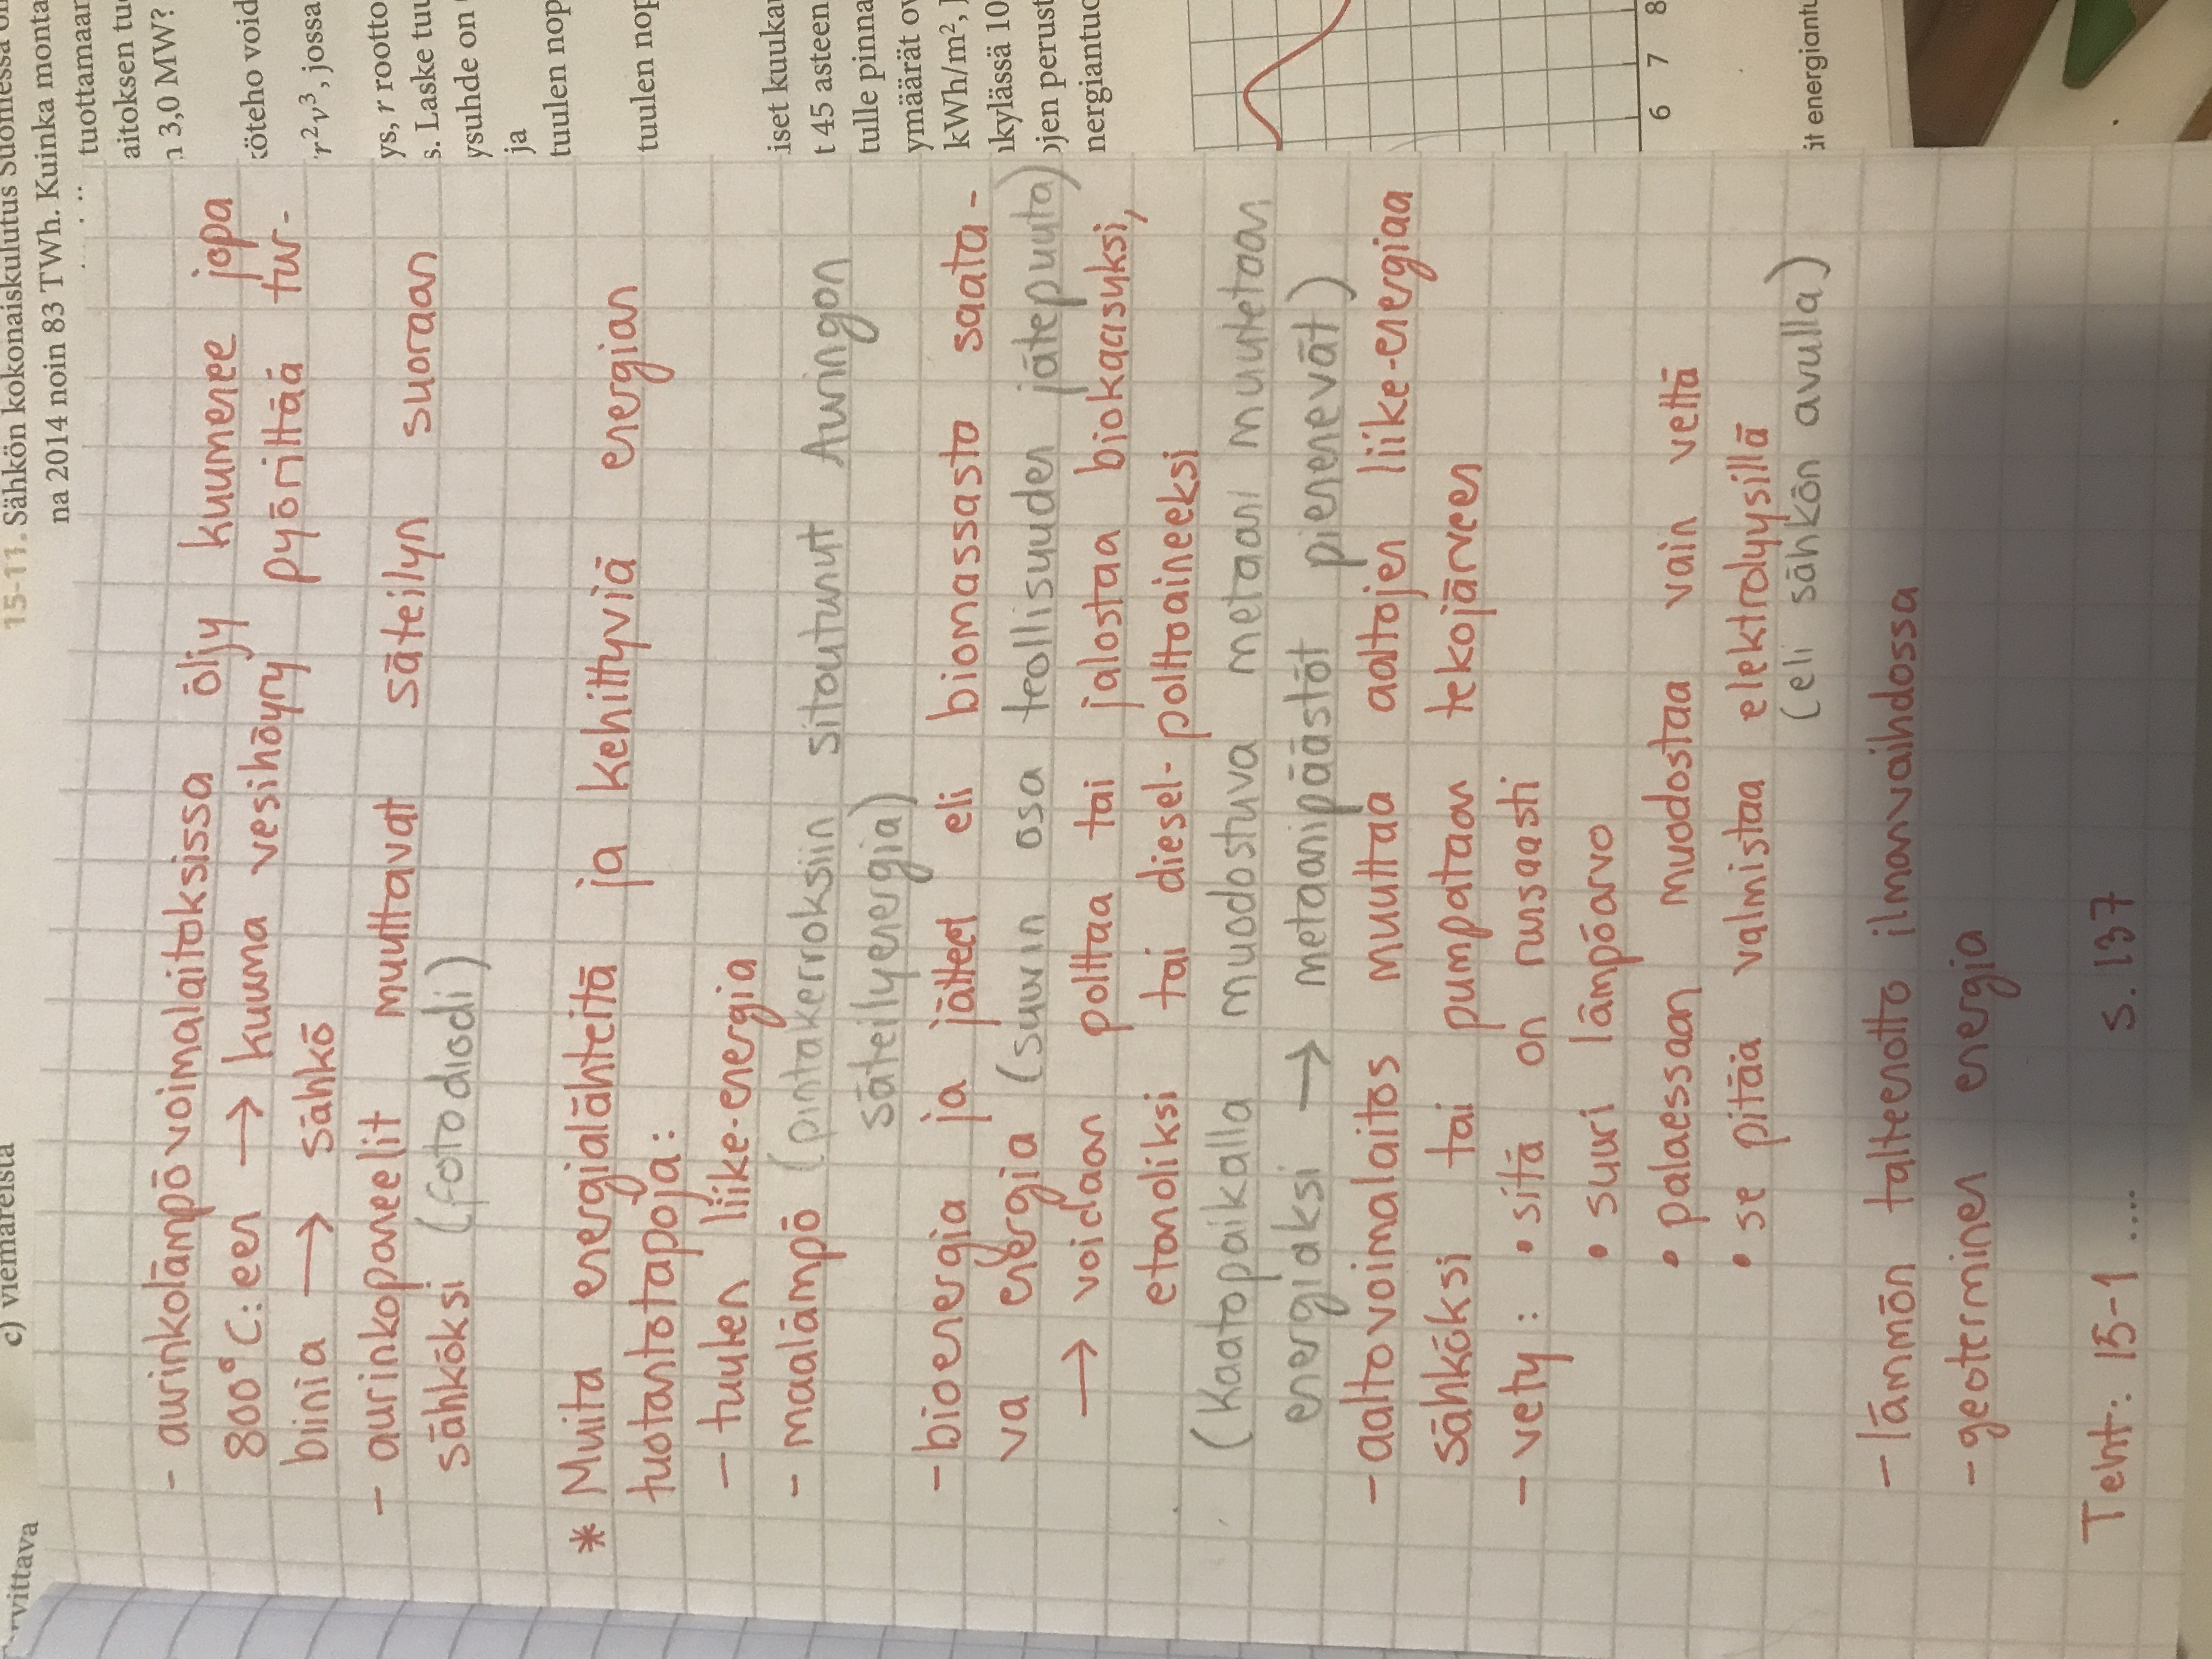 15-11. Sähkön kokonaiskulutus Suomessa
na 2014 noin 83 TWh. Kuinka monta
tuottamaan
3,0 MW?
void
r²v³, jossa
ys, r rootto
s. Laske tuu
ysuhde on
ja
tuulen nop
tuulen nop
iset kuuka
t 45 asteen
tulle pinna
ymäärät ov
kWh/m², J
kylässä 10
jen perust
nergiantuo
6 7 8
ät energiantu
c) viemäreistä
rvittava
- aurinkolämpövoimalaitoksissa öljy kuumenee jopa
800°C:een → kuuma vesihöyry pyörittää tur-
binia → sähkö
- aurinkopaneelit muuttavat säteilyn suoraan
sähköksi (fotodiodi)
* Muita energialähteitä ja kehittyviä energian
tuotantotapoja:
- tuulen liike-energia
- maalämpö (pintakerroksiin sitoutunut Auringon
säteilyenergia)
- bioenergia ja jätteet eli biomassasta saata-
va energia (suurin osa teollisuuden jätepuuta)
→ voidaan polttaa tai jalostaa biokaasuksi,
etanoliksi tai diesel-polttoaineeksi
(Kaatopaikalla muodostuva metaani muutetaan
energiaksi → metaanipäästöt pienenevät)
- aaltovoimalaitos muuttaa aaltojen liike-energiaa
sähköksi tai pumpataan tekojärveen
- vety: • sitä on runsaasti
• suuri lämpöarvo
• palaessaan muodostaa vain vettä
• se pitää valmistaa elektrolyysillä
(eli sähkön avulla)
- lämmön talteenotto ilmanvaihdossa
- geoterminen energia
Teht: 15-1 .... s. 137